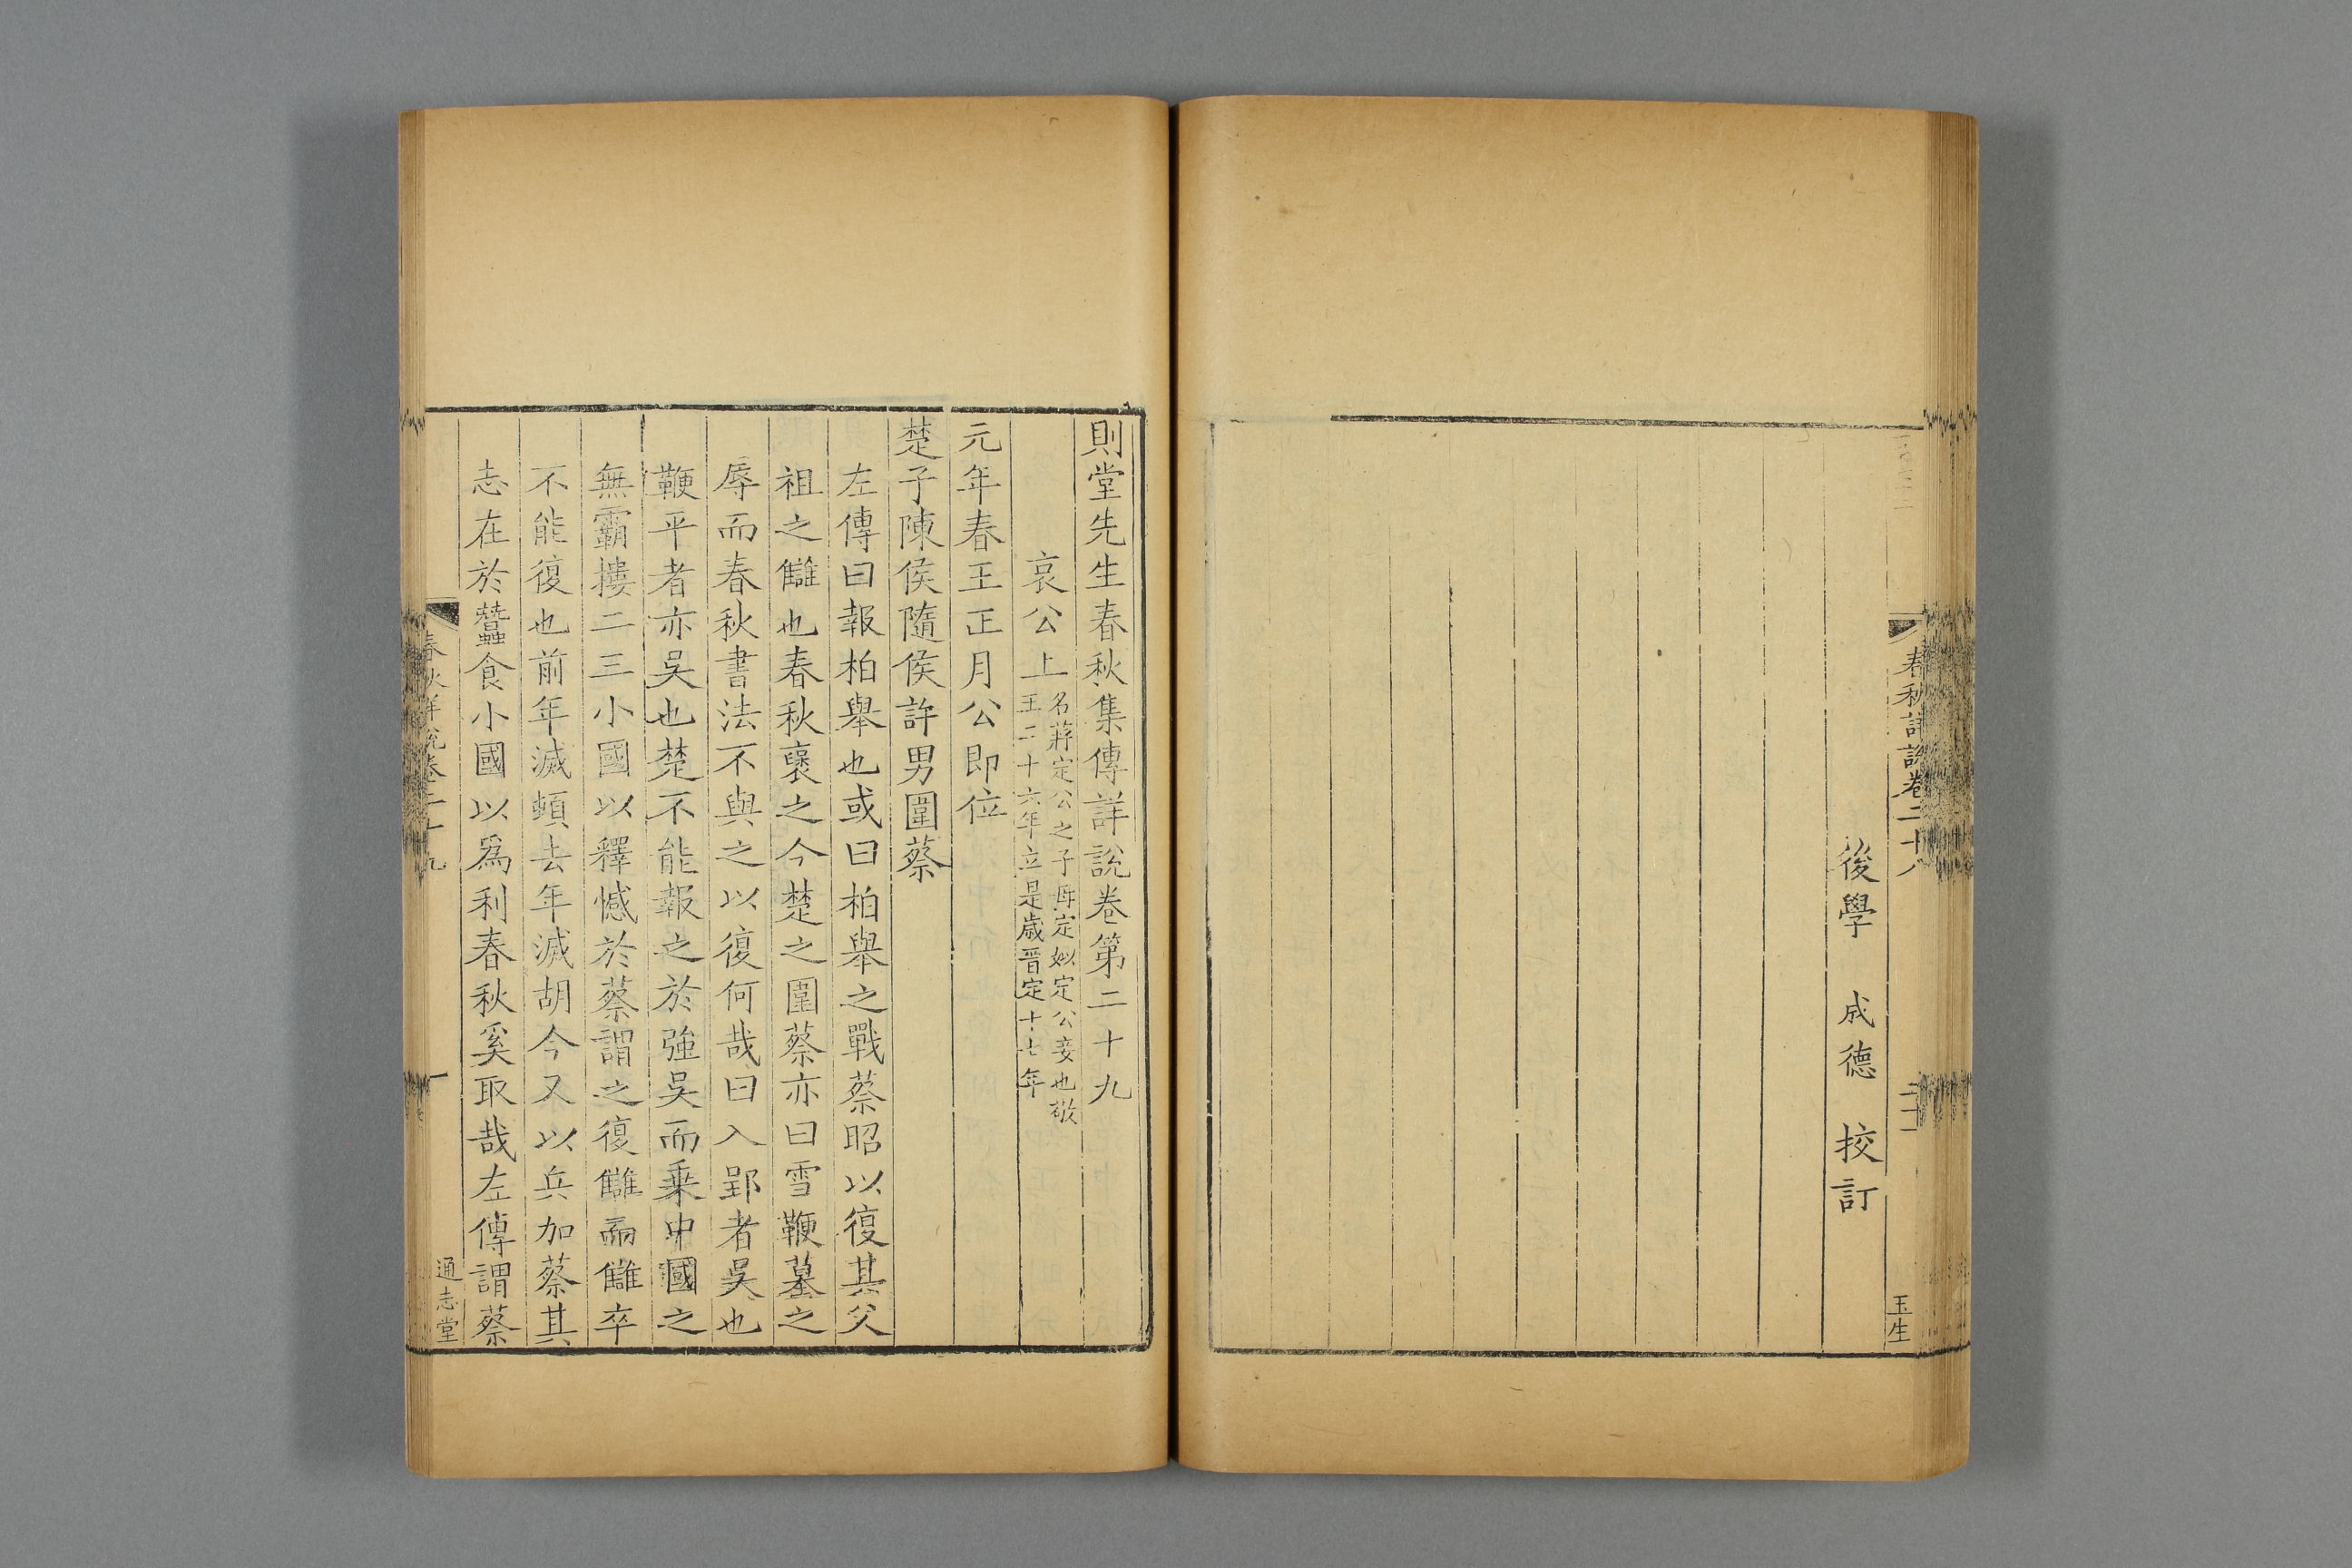 春秋詳說卷二十八
二十一
玉生
後學 成德 挍訂
則堂先生春秋集傳詳說卷第二十九
哀公上
名蔣定公之子母定姒定公妾也敬
王二十六年立是歲晉定十七年
元年春王正月公即位
楚子陳侯隨侯許男圍蔡
左傳曰報柏舉也或曰柏舉之戰蔡昭以復其父
祖之讎也春秋襃之今楚之圍蔡亦曰雪鞭墓之
辱而春秋書法不與之以復何哉曰入郢者吳也
鞭平者亦吳也楚不能報之於強吳而乗中國之
無霸摟二三小國以釋憾於蔡謂之復讎而讎卒
不能復也前年滅頓去年滅胡今又以兵加蔡其
志在於蠶食小國以爲利春秋奚取哉左傳謂蔡
春秋詳說卷二十九
一
通志堂